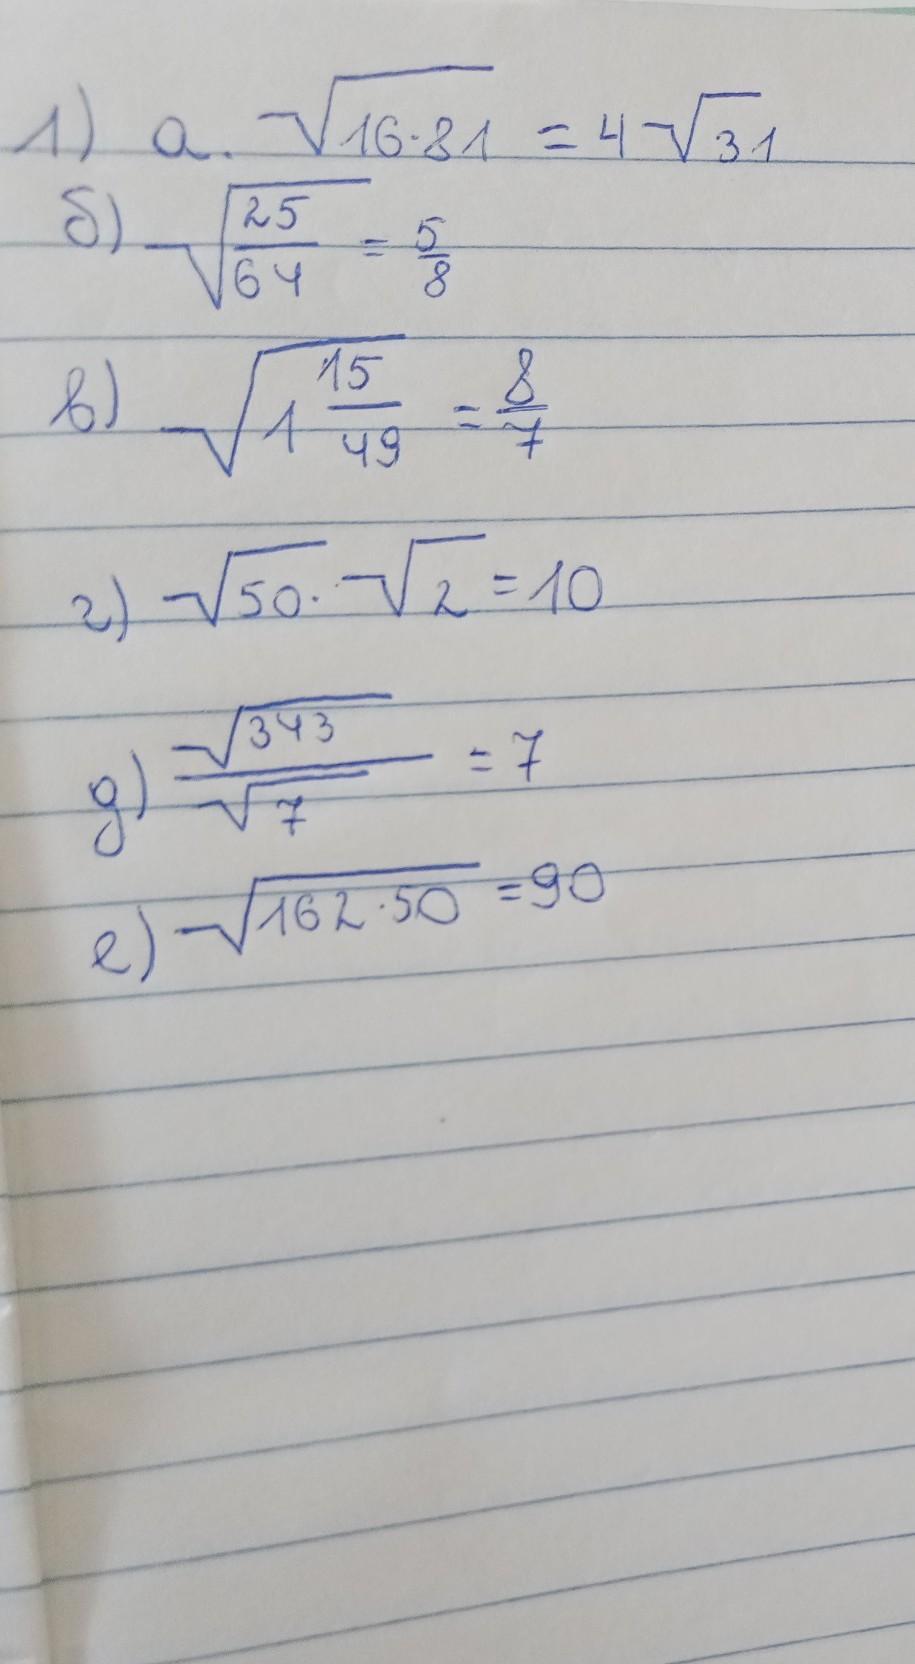 1) а. √16·81 = 4√31
б) √25/64 = 5/8
в) √1 15/49 = 8/7
г) √50 · √2 = 10
д) √343/√7 = 7
е) √162·50 = 90